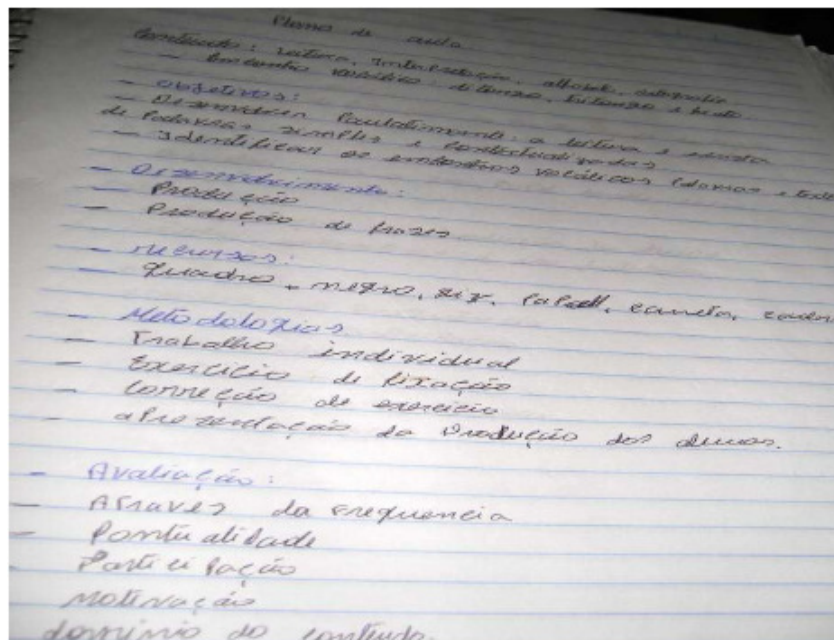 Plano de aula
Conteúdo: leitura, interpretação,
— Encontro vocálico: ditongo, tritongo e hiato
— Objetivos:
— Desenvolver Paulatinamente a leitura e escrita
de Palavras simples e contextualizadas
— Identificar os encontros vocálicos
— Desenvolvimento:
— Produção
— Produção de frases
— recursos:
— Quadro, negro, giz, Papel, caneta,
— Metodologias
— Trabalho individual
— Exercício de fixação
— Correção de exercício
— aPresentação da Produção dos alunos.
— Avaliação:
— Através da frequencia
— Pontualidade
— Participação
motivação
domínio do conteudo.